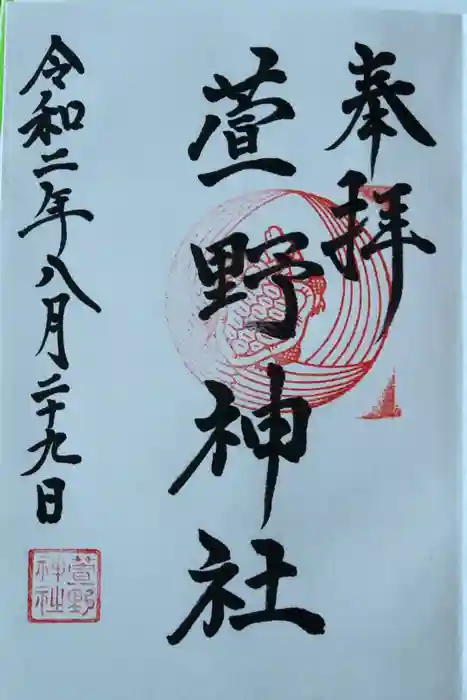 奉拝
萱野神社
令和二年八月二十九日
萱野
神社